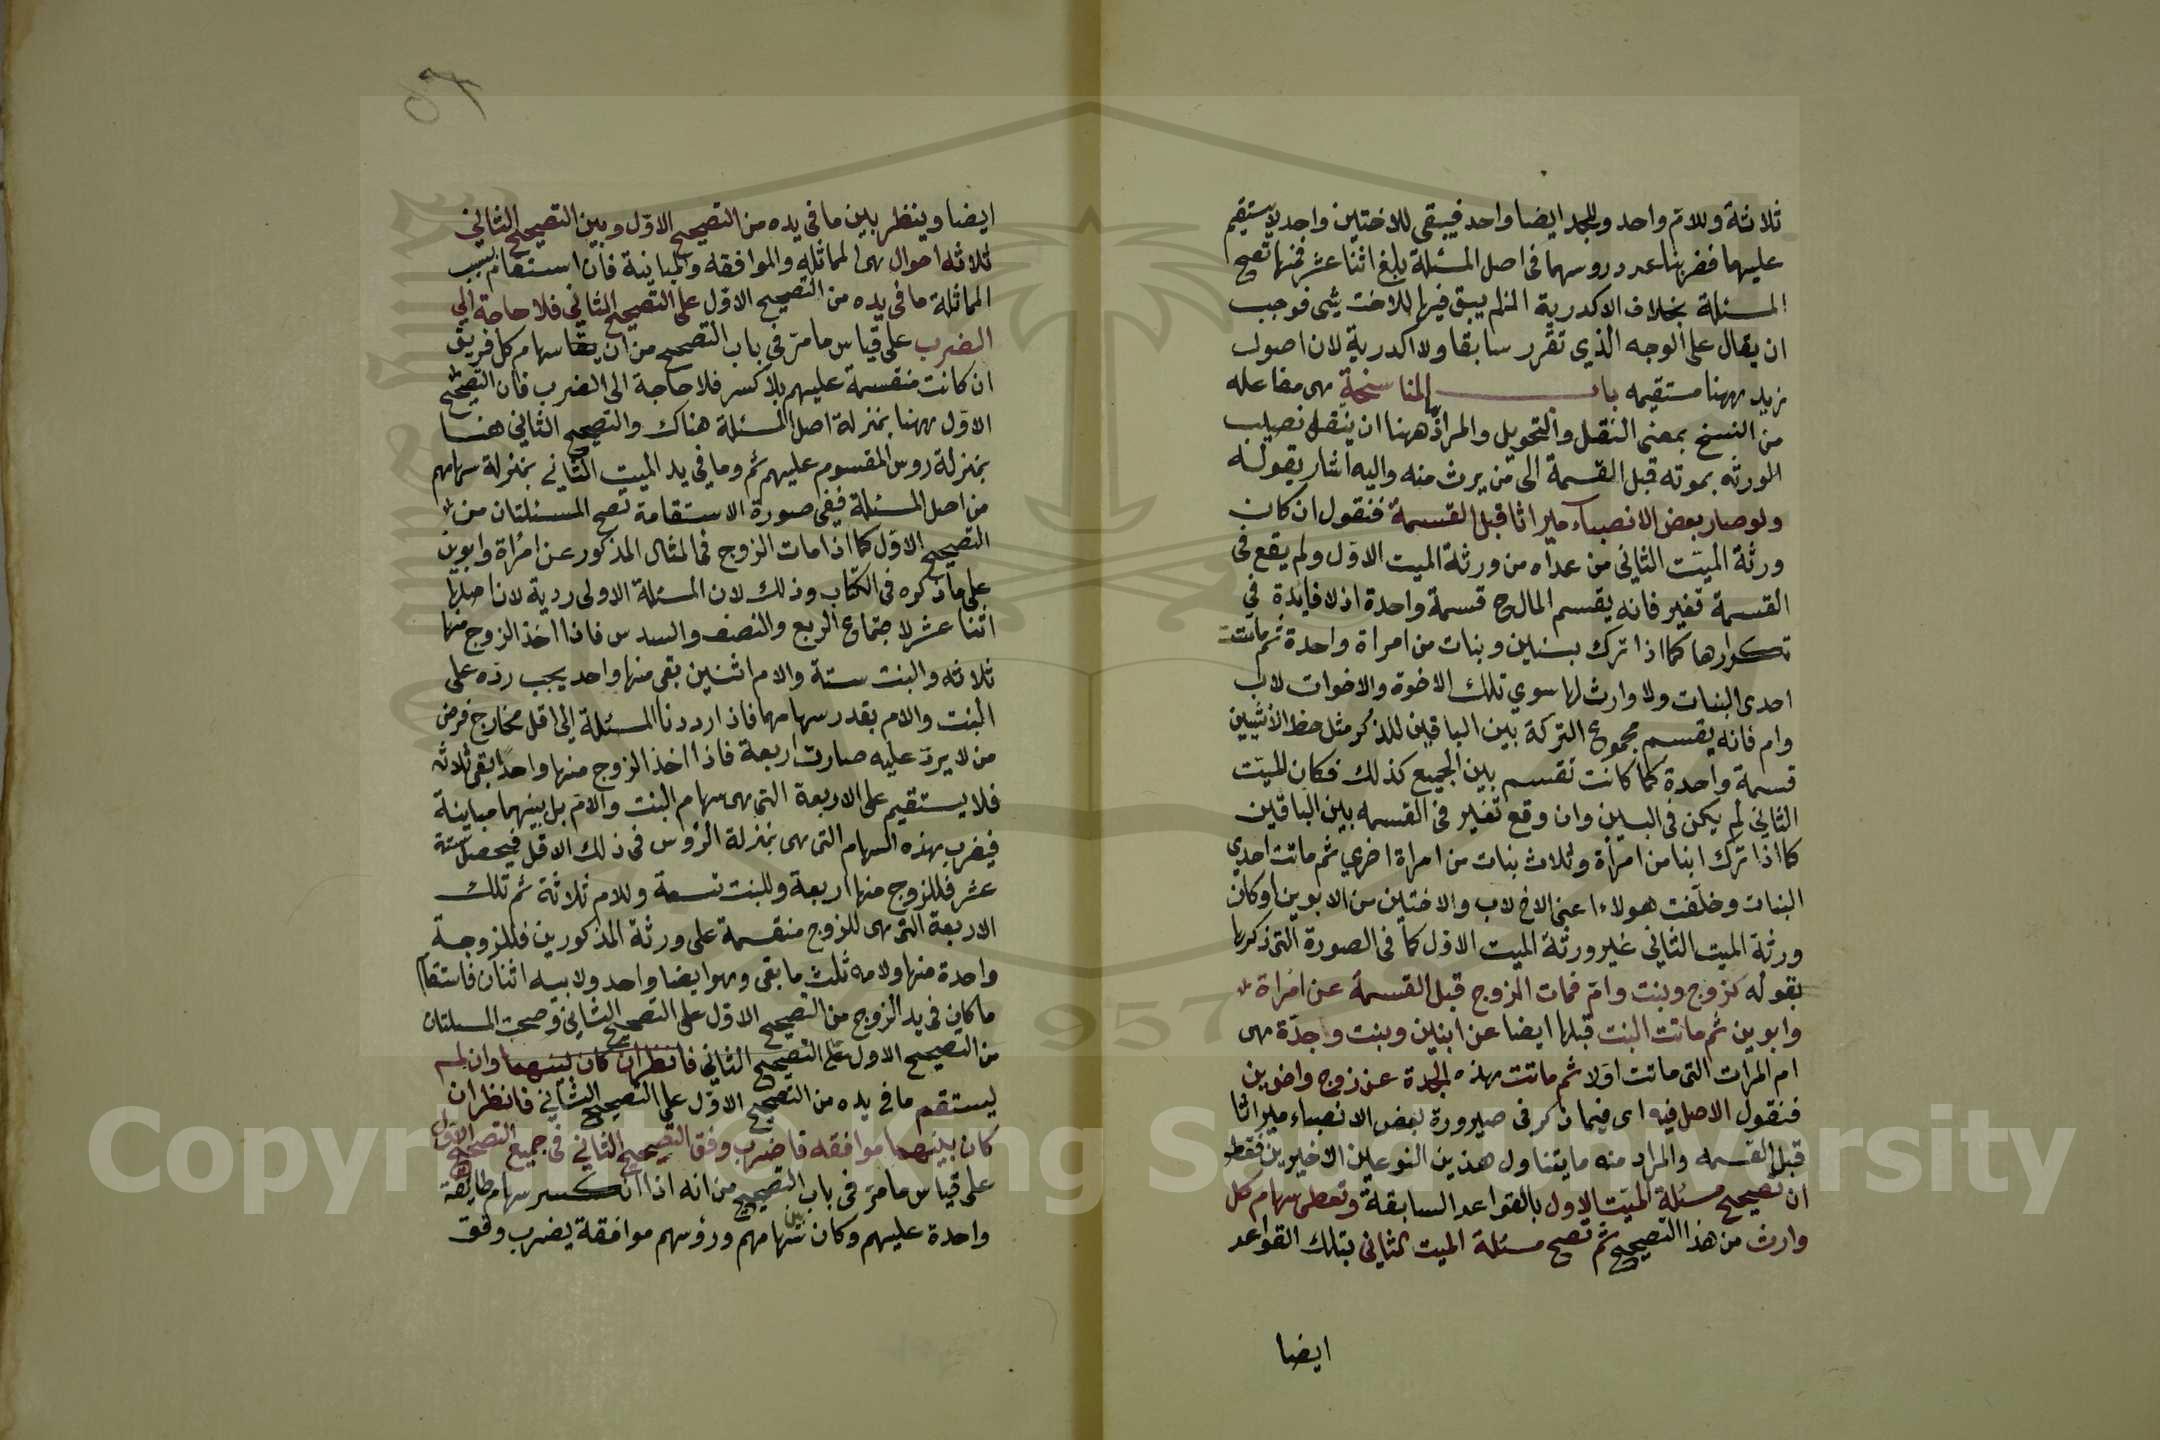 ثلاثة وللام واحد وللجد ايضا واحد فيبقى للاختين واحد لا يستقيم
عليهما فضربنا عدد روسهما فى اصل المسئلة بلغ اثنا عشر فمنها تصح
المسئلة بخلاف الاكدرية اذ لم يبق فيها للاخت شئ فوجب
ان يقال على الوجه الذي تقرر سابقا ولا اكدرية لان اصول
زيد ههنا مستقيمه باب المناسخة هى مفاعله
من النسخ بمعنى النقل والتحويل والمراد ههنا ان ينقل نصيب
الورثه بموته قبل القسمة الى من يرث منه واليه اشار بقوله
ولو صار بعض الانصباء ميراثا قبل القسمة فنقول ان كان
ورثة الميت الثانى من عداه من ورثة الميت الاول ولم يقع فى
القسمة تغير فانه يقسم المال ح قسمة واحدة اذ لا فايدة فى
تكرارها كما اذا ترك بنين وبنات من امراة واحدة ثم ماتت
احدى البنات ولا وارث لها سوي تلك الاخوة والاخوات لاب
وام فانه يقسم مجموع التركة بين الباقين للذكر مثل حظ الانثيين
قسمة واحدة كما كانت تقسم بين الجميع كذلك فكان الميت
الثاني لم يكن فى البين وان وقع تغير فى القسمه بين الباقين
كما اذا ترك ابنا من امرأة وثلاث بنات من امراة اخري ثم ماتت احدي
البنات وخلفت هولاء اعنى الاخ لاب والاختين من الابوين او كان
ورثة الميت الثاني غير ورثة الميت الاول كما فى الصورة التى ذكرها
بقوله كزوج وبنت وام فمات الزوج قبل القسمة عن امراة
وابوين ثم ماتت البنت قبلها ايضا عن ابنين وبنت وجدة هى
ام المرات التى ماتت اولا ثم ماتت هذه الجدة عن زوج واخوين
فنقول الاصل فيه اى فيما ذكر فى صيرورة بعض الانصباء ميراثا
قبل القسمه والمراد منه ما يتناول هذين النوعين الاخيرين فقط
ان تصحيح مسئلة الميت الاول بالقواعد السابقة وتعطى سهام كل
وارث من هذا التصحيح ثم تصح مسئلة الميت الثانى بتلك القواعد
ايضا
ايضا وينظر بين ما فى يده من التصحيح الاول وبين التصحيح الثاني
ثلاثه احوال هى المماثله والموافقه والمباينة فان استقام بسبب
المماثلة ما فى يده من التصحيح الاول على التصحيح الثاني فلا حاجة الي
الضرب على قياس ما مر في باب التصحيح من ان سهام كل فريق
ان كانت منقسمة عليهم بلا كسر فلا حاجة الى الضرب فان التصحيح
الاول ههنا بمنزلة اصل المسئلة هناك والتصحيح الثاني هنا
بمنزلة روس المقسوم عليهم ثم وما فى يد الميت الثاني بمنزلة سهامهم
من اصل المسئلة ففى صورة الاستقامة تصح المسئلتان من
التصحيح الاول كما اذا مات الزوج فى المثال المذكور عن امرأة وابوين
على ما ذكره فى الكتاب وذلك لان المسئلة الاولى ردية لان اصلها
اثنا عشر لاجتماع الربع والنصف والسدس فاذا اخذ الزوج منها
ثلاثه والبنت ستة والام اثنين بقى منها واحد يجب رده على
البنت والام بقدر سهامهما فاذا رددنا المسئلة الى اقل مخارج فرض
من لا يرد عليه صارت اربعة فاذا اخذ الزوج منها واحدا بقى ثلاثه
فلا يستقيم على الاربعة التى هى سهام البنت والام بل بينهما مباينة
فيضرب هذه السهام التى هى بمنزلة الرؤس فى ذلك الاقل فيحصل ستة
عشر فللزوج منها اربعة وللبنت تسعة وللام ثلاثة ثم تلك
الاربعة التى هى للزوج منقسمة على ورثة المذكورين فللزوجة
واحدة منها ولامه ثلث ما بقى وهو ايضا واحد ولابيه اثنان فاستقام
ما كان فى يد الزوج من التصحيح الاول على التصحيح الثاني وصحت المسئلتان
من التصحيح الاول على التصحيح الثاني فانظر ان كان بينهما وان لم
يستقم ما في يده من التصحيح الاول على التصحيح الثاني فانظر ان
كان بينهما موافقه فاضرب وفق التصحيح الثاني فى جميع التصحيح الاول
على قياس ما مر فى باب التصحيح من انه اذا انكسر سهام طايفة
واحدة عليهم وكان بين سهامهم ورؤسهم موافقة يضرب وفق
Copyright © King Saud University
1957